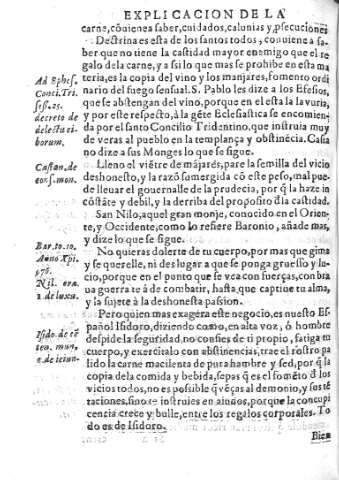 EXPLICACION DE LA
carne, cõuienea saber, cuidados, calunias y, psecuciones
Doctrina es esta de los santos todos, conuiene a saber
que no tiene la castidad mayor enemigo que el re
galo dela carne, y assi lo que mas se prohibe en esta ma
teria, es la copia del vino y los manjares, fomento ordi
nario del fuego sensual. S. Pablo les dize a los Efesios,
que se abstengan del vino, porque en el esta la luxuria,
y por este respecto, à la gẽte Eclesiastica se encomien
da por el santo Concilio Tridentino, que instruia muy
de veras al pueblo en la templança y abstinẽcia. Casia
no dize a sus Monges lo que se sigue.
Lleno el viẽtre de mãjares, pare la semilla del vicio
deshonesto, y la razõ sumergida cõ este peso, mal pue
de lleuar el gouernalle de la prudẽcia, por q̃ la haze in
cõstãte y debil, y la derriba del proposito dla castidad.
San Nilo, aquel gran monje, conocido en el Orien-
te, y Occidente, como lo refiere Baronio, añade mas,
y dize lo que se sigue.
No quieras dolerte de tu cuerpo, por mas que gima
y se querelle, ni des lugar a que se ponga gruesso y lu-
cio, porque en el punto que se vea con fuerças, con bra
ua guerra te à de combatir, hasta que captiue tu alma,
y la sujete à la deshonesta passion.
Pero quien mas exagera este negocio, es nuestro Es
pañol Isidoro, diziendo como, en alta voz, ó hombre
despide la seguridad, no confies de ti propio, fatiga tu
cuerpo, y exercitalo con abstinencias, trae el rostro pa
lido la carne macilenta de pura hambre y sed, por q̃ la
copia de la comida y bebida, sepas q̃ es el fomẽto d los
vicios todos, no es posible q̃ veças al demonio, y sus tẽ
taciones, sino te instruies en aiunos, porque la concupi
cencia crece y bulle, entre los regalos corporales. To
do es de Isidoro.
Bien
Ad Ephes.
Conci. Tri.
sess. 25.
decreto de
delectu ci-
borum.
Casian. de
Bar. to. 10.
Anno Xpi.
Nil. ora.
2 de luxu.
Isido. de cõ
sen. mun.